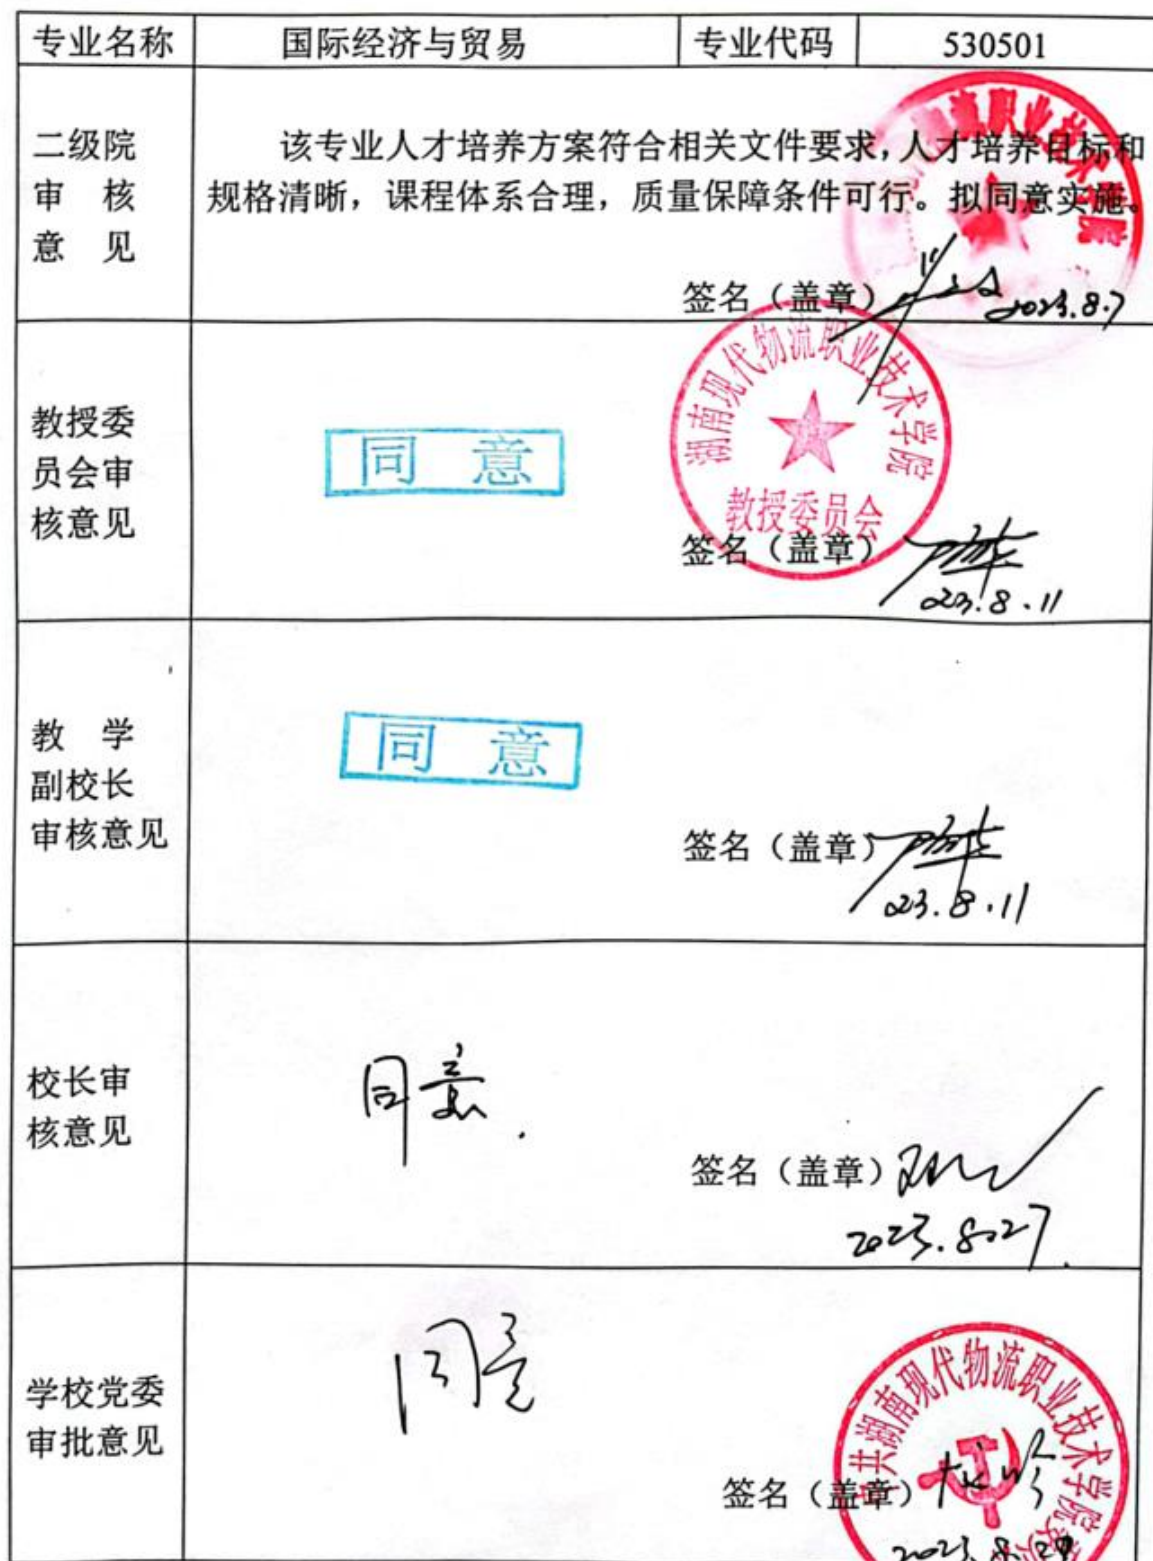 专业名称 国际经济与贸易 专业代码 530501
二级院
审 核
意 见
该专业人才培养方案符合相关文件要求，人才培养目标和
规格清晰，课程体系合理，质量保障条件可行。拟同意实施。
签名（盖章）
2023.8.7
教授委
员会审
核意见
同 意
湖南现代物流职业技术学院
教授委员会
签名（盖章）
23.8.11
教 学
副校长
审核意见
同 意
签名（盖章）
23.8.11
校长审
核意见
同意.
签名（盖章）
2023.8.27
学校党委
审批意见
同意
中共湖南现代物流职业技术学院
签名（盖章）